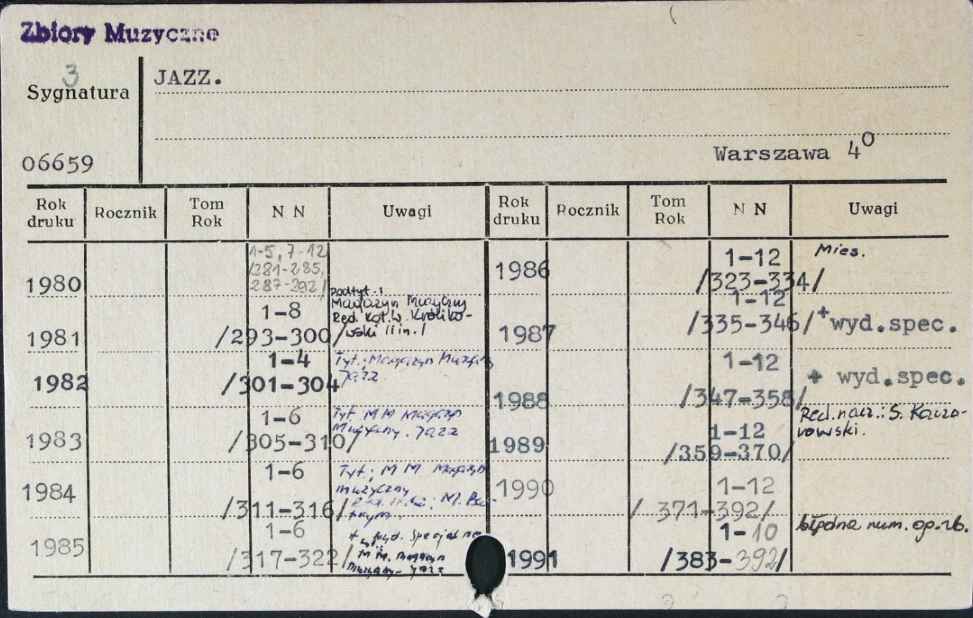 Zbiory Muzyczne
3
Sygnatura
JAZZ.
06659
Warszawa 4º
Rok druku Rocznik Tom Rok N N Uwagi Rok druku Rocznik Tom Rok N N Uwagi
1980
1-5, 7-12
/281-285,
287-292/
1981
1-8
/293-300/
podtyt.:
Magazyn Muzyczny
Red. Kol. W. Króliko-
wski i in./
1982
1-4
/301-304/
Tyt.: Magazyn Muzyczny
Jazz
1983
1-6
/305-310/
Tyt. MM Magazyn
Muzyczny. Jazz
1984
1-6
/311-316/
Tyt.: MM Magazyn
muzyczny
1985
1-6
/317-322/
+ wyd. specjalne
MM. Magazyn
Muzyczny - Jazz
1986
1-12
/323-334/
Mies.
1987
1-12
/335-346/
+wyd.spec.
1988
1-12
/347-358/
+ wyd.spec.
1989
1-12
/359-370/
Red. nacz.: S. Kaczo-
rowski.
1990
1-12
/ 371-392/
1991
1-10
/383-392/
błędne num. og. zb.